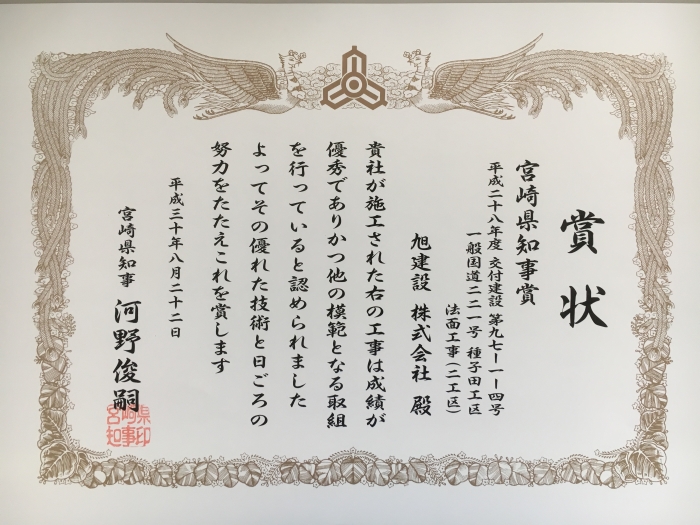 賞状
宮崎県知事賞
平成二十八年度 交付建設 第九七ー一ー四号
一般国道二二一号 種子田工区
法面工事(二工区)
旭建設 株式会社 殿
貴社が施工された右の工事は成績が
優秀でありかつ他の模範となる取組
を行っていると認められました
よってその優れた技術と日ごろの
努力をたたえこれを賞します
平成三十年八月二十二日
宮崎県知事 河野俊嗣
宮崎県知事印